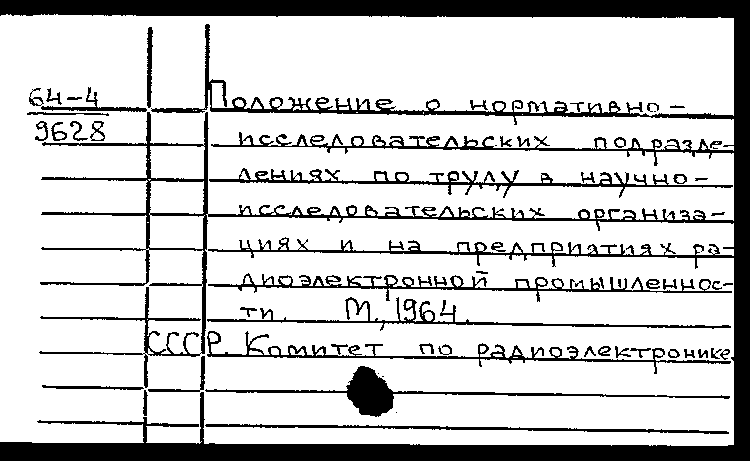 64-4
9628
Положение о нормативно-
исследовательских подразде-
лениях по труду в научно-
исследовательских организа-
циях и на предприятиях ра-
диоэлектронной промышленнос-
ти. М., 1964.
СССР. Комитет по радиоэлектронике.